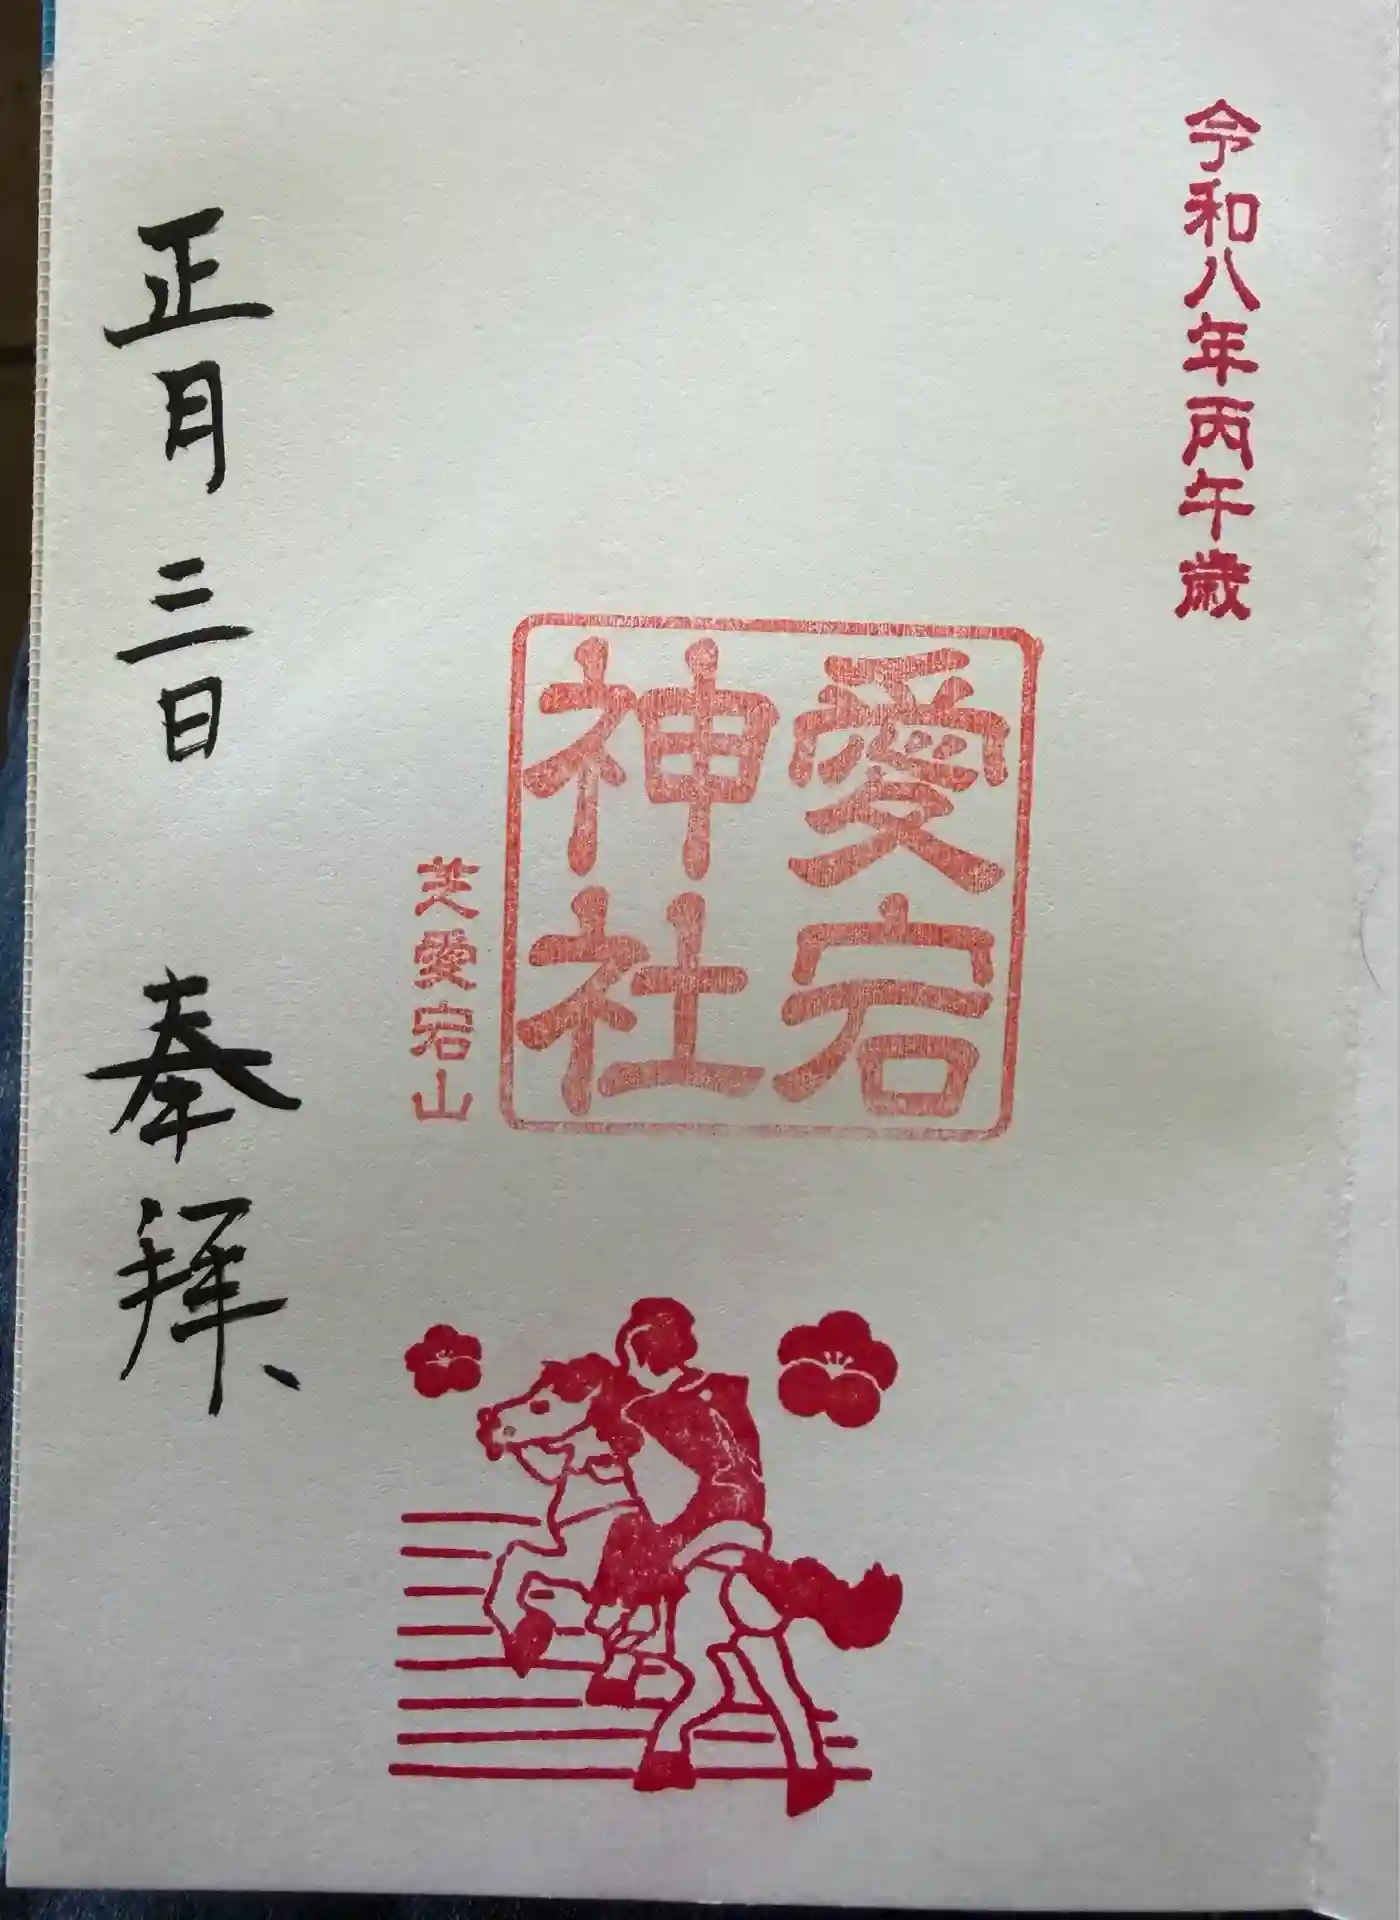 令和八年丙午歳
愛宕
神社
芝愛宕山
正月三日 奉拝